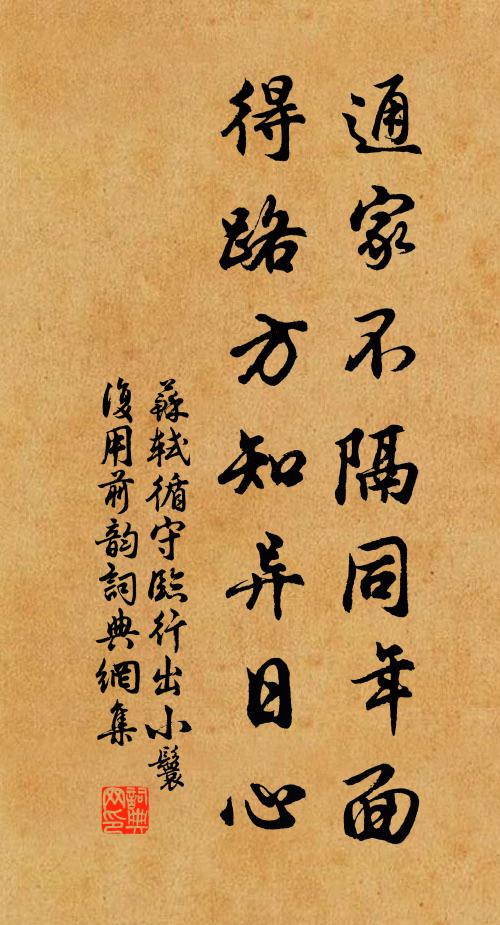 通家不隔同年面
得路方知异日心
蘇軾循守臨行出小鬟
復用前韵詞典網集